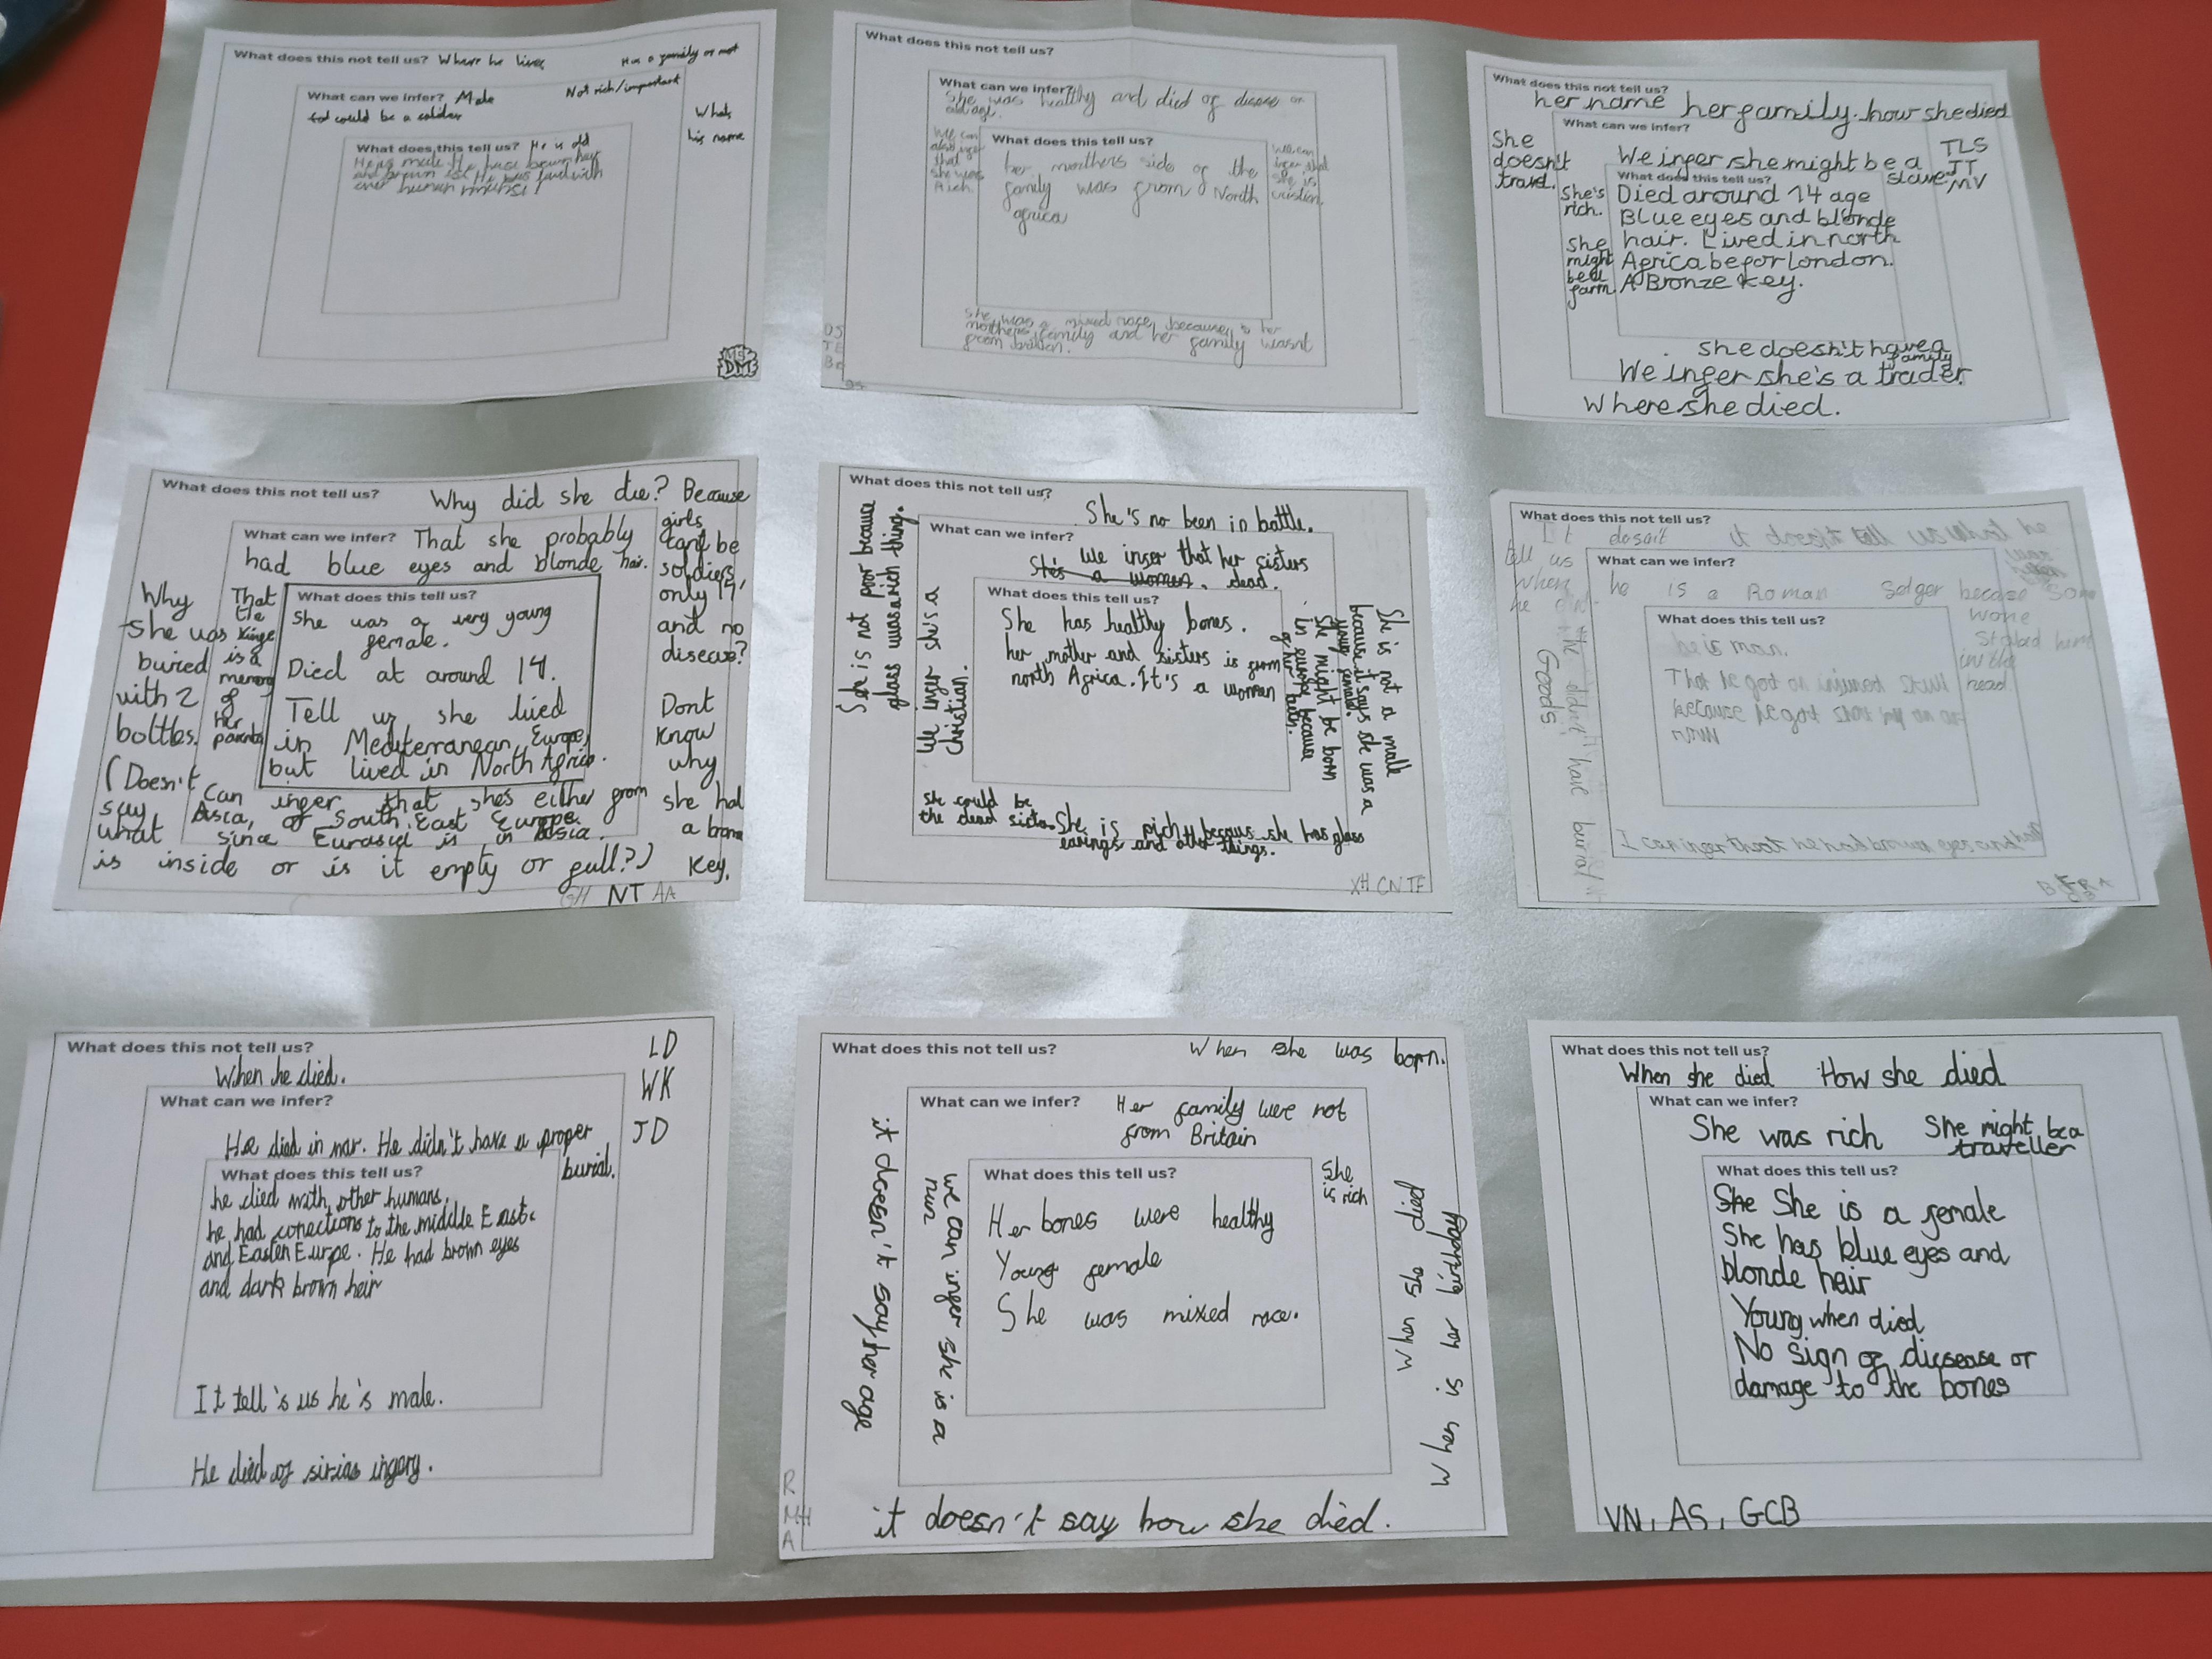 What does this not tell us? Where he lives
Has a family or not
What can we infer? Male
Not rich/important
could be a soldier
Whats
his name
What does this tell us? He is old
He is male. He has brown hair
and brown
He was found with
other human
What does this not tell us?
What can we infer?
She was healthy and died of disease or
old age.
We can
also infer
that
she was
Rich
What does this tell us?
her morthers side of the
family was from North
africa
We can
infer that
she is
cristian.
She was a mixed race, because to her
mothers family and her family wasnt
from britien.
What does this not tell us?
her name her family. how she died
She
doesn't
travel.
What can we infer?
We infer she might be a
slave
TLS
JT
MV
She's
rich.
she
might
be a
farm
What does this tell us?
Died around 14 age
Blue eyes and blonde
hair. Lived in north
Africa befor london.
A Bronze key.
she doesn't have a
family
We infer she's a trader.
Where she died.
What does this not tell us?
Why did she die? Because
girls
cant be
soldiers,
only 14,
and no
disease?
Dont
know
why
she had
a bronze
key.
What can we infer? That she probably
had blue eyes and blonde hair.
Why
she was
buried
with 2
bottles.
That
the
is a
memory
of
Her
parents
What does this tell us?
She was a very young
female.
Died at around 14.
Tell us she lived
in Mediterranean Europe,
but lived in North Africa.
(Doesn't
say
what
is inside or is it empty or full?)
can infer that shes either from
Asia, or South East Europe
since Eurasia is in Asia.
GH NT AA
What does this not tell us?
She's no been in battle.
She is not poor because
glass was a rich thing.
What can we infer?
We infer that her sisters
She's a women. dead.
We infer she's a
Christian.
What does this tell us?
She has healthy bones.
her mother and sisters is from
north Africa. It's a woman
She might be born
in europe because
of her
She is not a male
because it says she was a
young female.
she could be
the dead sister.
She is rich because she has glass
earings and other things.
XH CN TF
What does this not tell us?
It dosait
tell us
when
he
it doesn't tell us what he
was
What can we infer?
he is a Roman Solger because Som
wone
Stabed him
in the
head
What does this tell us?
he is man.
That he got an injured skull
because he got
he didn't have burial
Goods
I can infer that he had brown eyes and
What does this not tell us?
When he died.
LD
WK
JD
What can we infer?
He died in war. He didn't have a proper
burial.
What does this tell us?
he died with other humans.
he had conections to the middle East
and Easten Eurpe. He had brown eyes
and dark brown hair
It tell's us he's male.
He died of sirias ingery.
What does this not tell us?
When she was born.
What can we infer?
Her family were not
from Britain
it doesn't say her age
we can infer she is a
nun
What does this tell us?
Her bones were healthy
Young female
She was mixed race.
She
is rich
When she died
When is her birthday
R
MH
A
it doesn't say how she died.
What does this not tell us?
When she died How she died
What can we infer?
She was rich
She might be a
traveller
What does this tell us?
She She is a female
She has blue eyes and
blonde hair
Young when died
No sign of dicsease or
damage to the bones
VN, AS, GCB